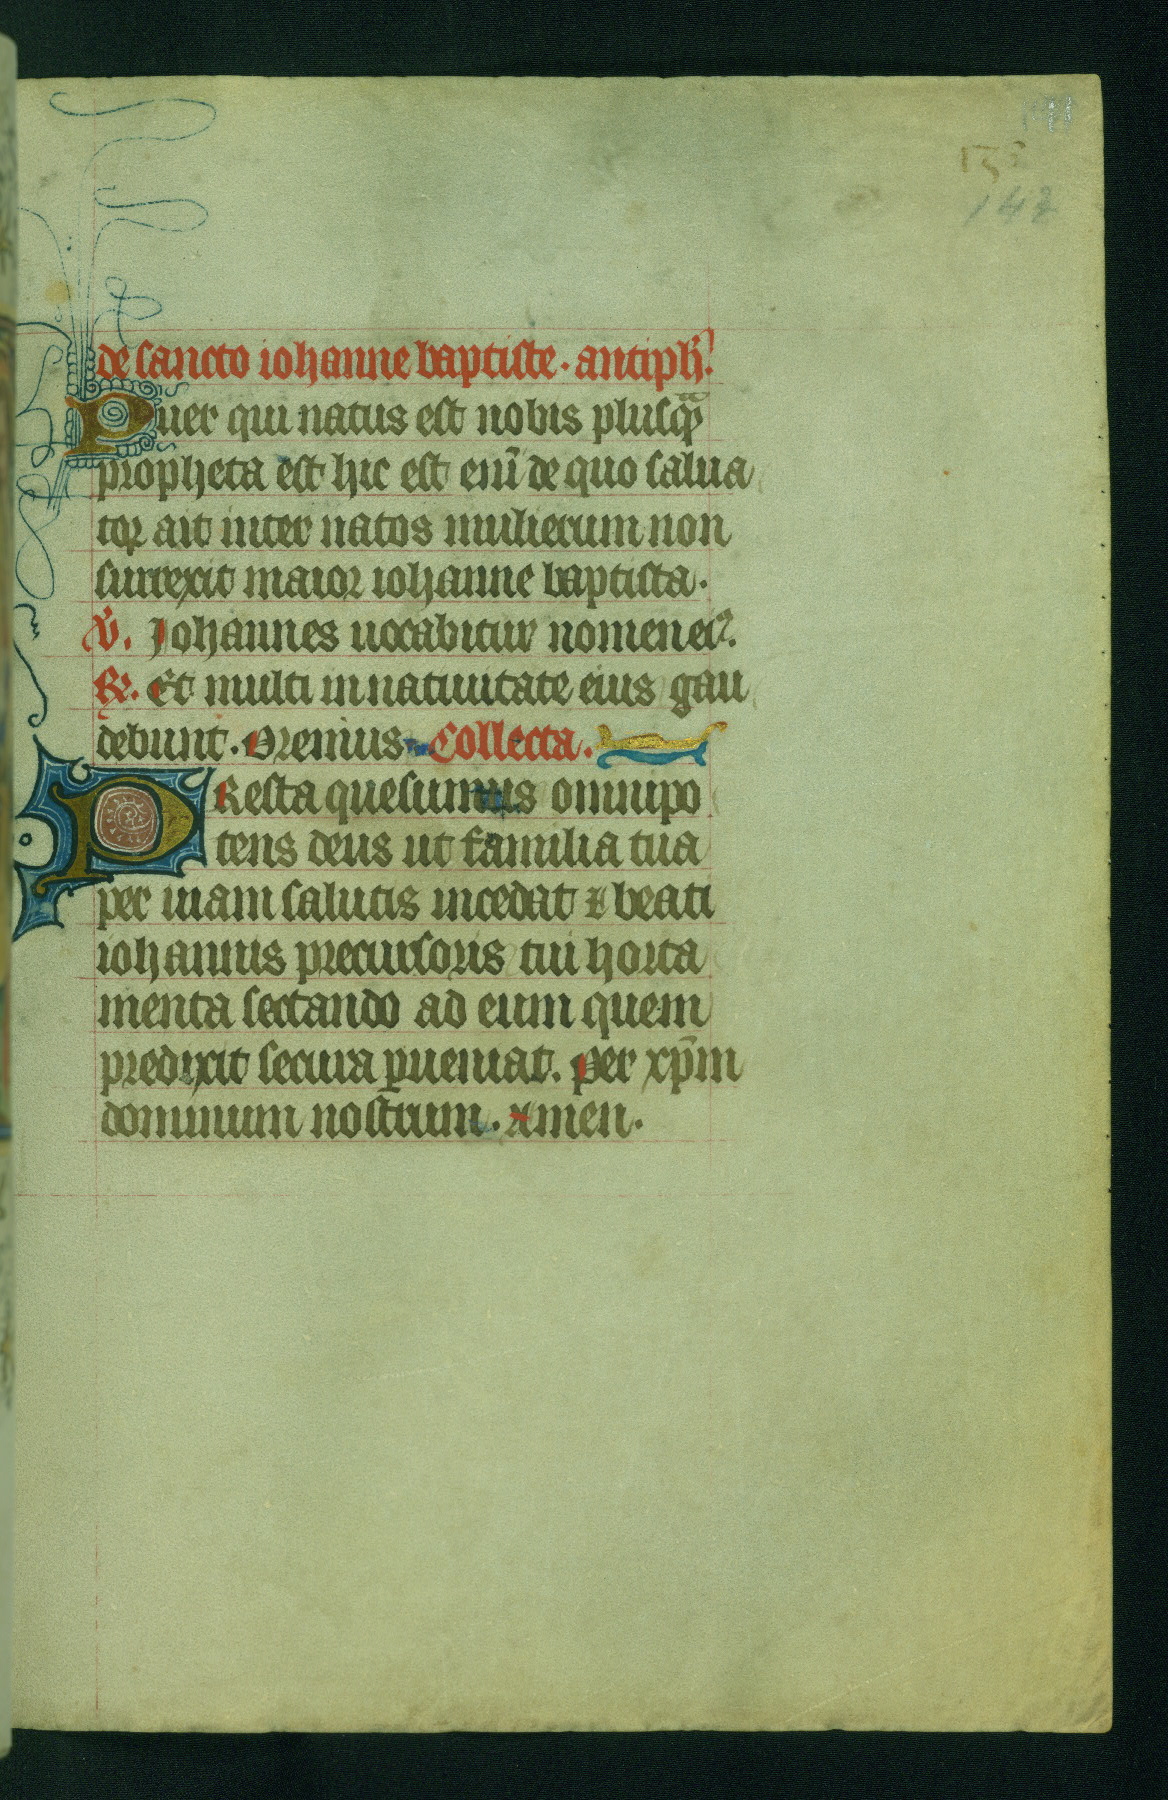 147
de sancto iohanne baptiste. antiph̄.
Puer qui natus est nobis plusqᷓ
propheta est hic est enī de quo salua
tor ait inter natos mulierum non
surrexit maior iohanne baptista.
℣. Johannes uocabitur nomen eiꝰ.
℟. Et multi in natiuitate eius gau
debunt. Oremus Collecta.
PResta quesumus omnipo
tens deus ut familia tua
per uiam salutis incedat ⁊ beati
iohannis precursoris tui horta
menta sectando ad eum quem
predixit secura ꝑueniat. Per xp̄m
dominum nostrum. Amen.